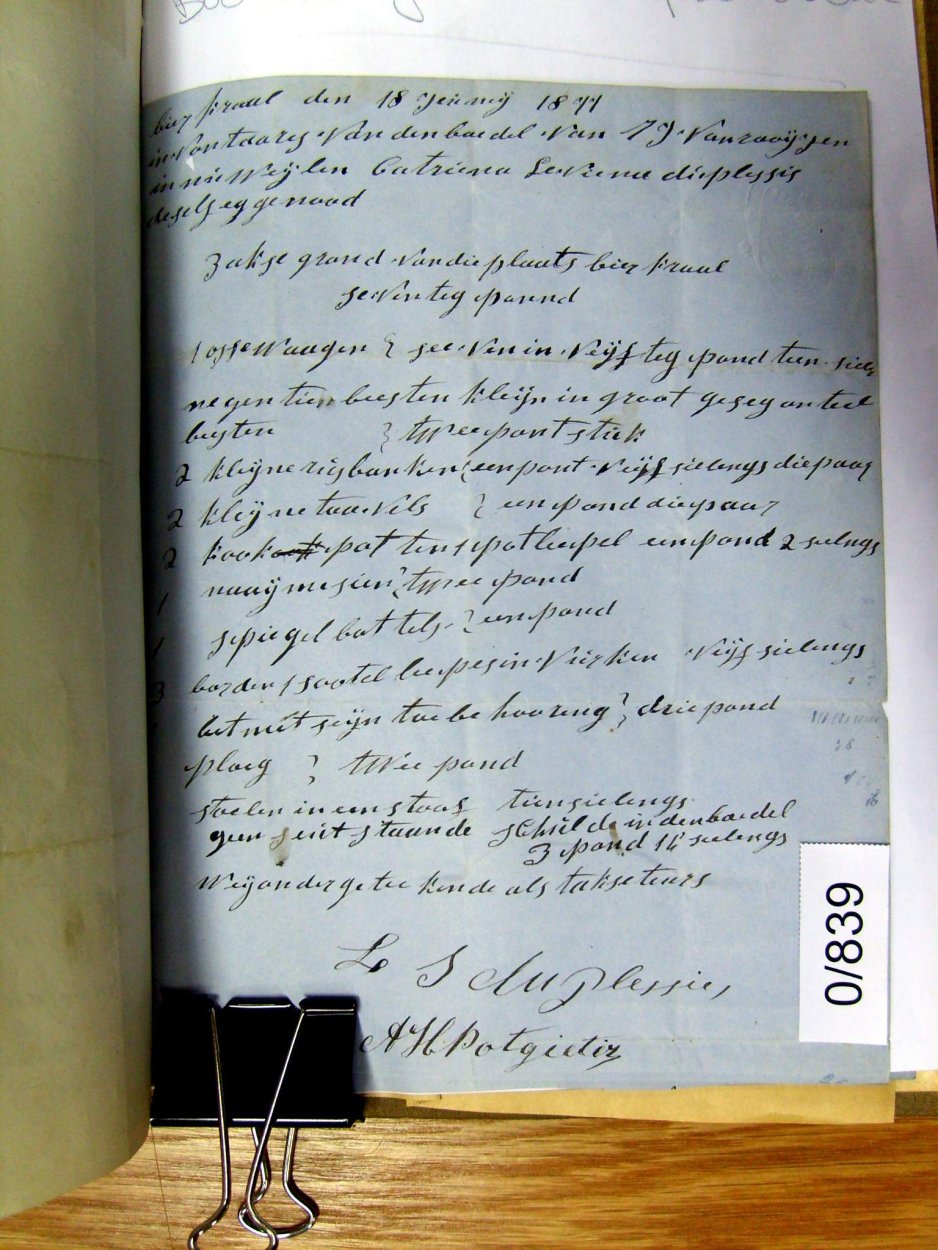 bierkraal den 18 Jeinnij 1871
in Ventaares van den boedel van T J Vanrooijjen
in nu Weijlen Catriena Leviena dieplessis
deselfs eggenood
3 akse grond van die plaats bier kraal
seventeg paund
1 osse Waagen } see ven in veijf teg pond tien siel
negentien beesten kleijn in groot geseg an teel
beesten } twee pont stuk
2 kleijne risbanken } een pont veijf sielengs die paar
2 kleijne taavils } een pond die paar
2 kook pot ten 1 pot leepel een pond 2 sielengs
1 naaij mesien } twee pond
1 spiegel bottels } een pond
3 borden 1 sootel leepes in vurken veijf sielengs
bet met seijn toe be hooring } drie pond
ploeg } twee pond
stoelen in een stoof tien sielengs
geen seut staande schulde in den boedel
3 pond 14 sielengs
Weij onder getee kende als takseteurs
L S du Plessies
A H Potgieter
0/839